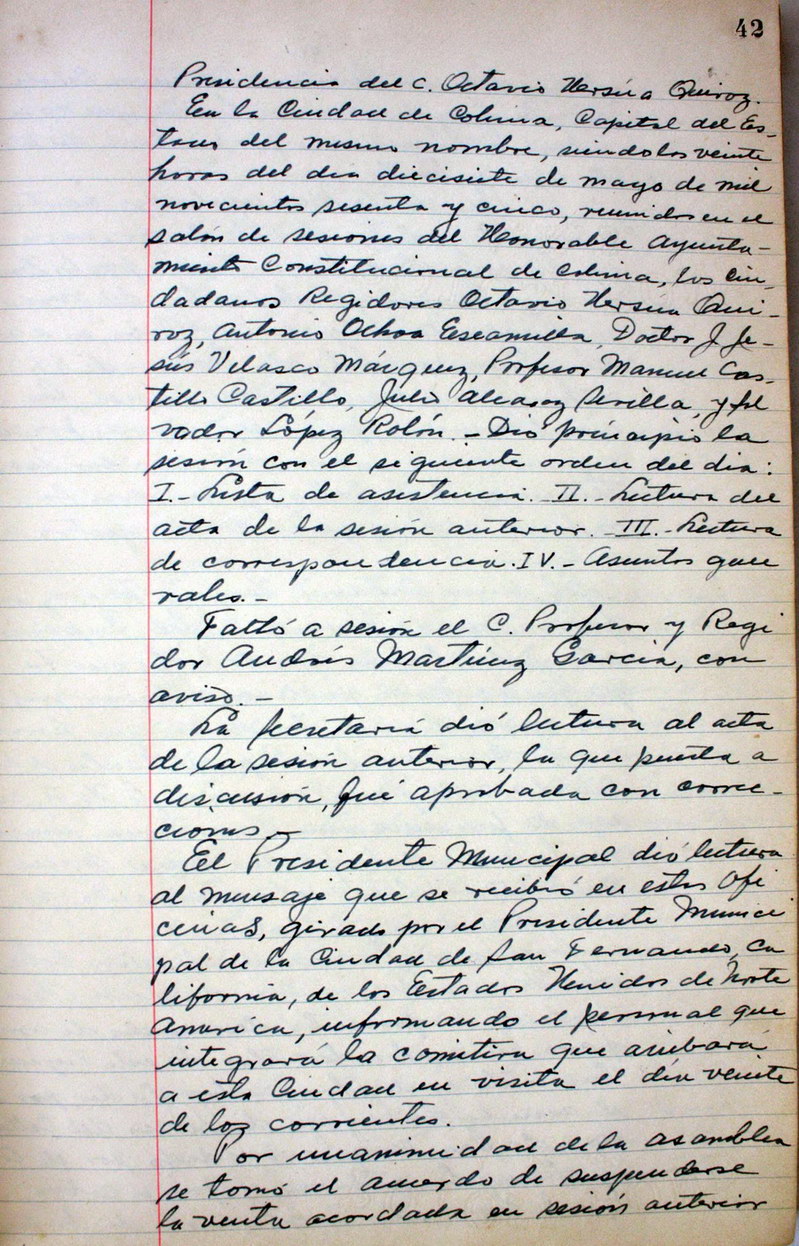 42
Presidencia del C. Octavio Ursúa Quiroz.
En la Ciudad de Colima, Capital del Es-
tado del mismo nombre, siendo las veinte
horas del dia diecisiete de mayo de mil
novecientos sesenta y cinco, reunidos en el
salón de sesiones del Honorable Ayunta-
miento Constitucional de Colima, los Ciu-
dadanos Regidores Octavio Ursúa Qui-
roz, Antonio Ochoa Escamilla, Doctor J. Je-
sús Velasco Márquez, Profesor Manuel Cas-
tillo Castillo, Julio Alcaraz Sevilla, y Sal
vador López Rolón.- Dió principio la
sesión con el siguiente orden del dia:
I.- Lista de asistencia. II.- Lectura del
acta de la sesión anterior. III.- Lectura
de correspondencia. IV.- Asuntos gene
rales.-
Faltó a sesión el C. Profesor y Regi
dor Andrés Martínez García, con
aviso.-
La Secretaría dió lectura al acta
de la sesión anterior, la que puesta a
discusión, fué aprobada con correc-
ciones.-
El Presidente Municipal dió lectura
al mensaje que se recibió en estas Ofi
cinas, girado por el Presidente Munici
pal de la Ciudad de San Fernando, Ca
lifornia, de los Estados Unidos de Norte
America, informando el personal que
integrará la comitiva que arribará
a esta Ciudad en visita el día veinte
de los corrientes.
Por unanimidad de la asamblea
se tomó el acuerdo de suspenderse
la venta acordada en sesión anterior